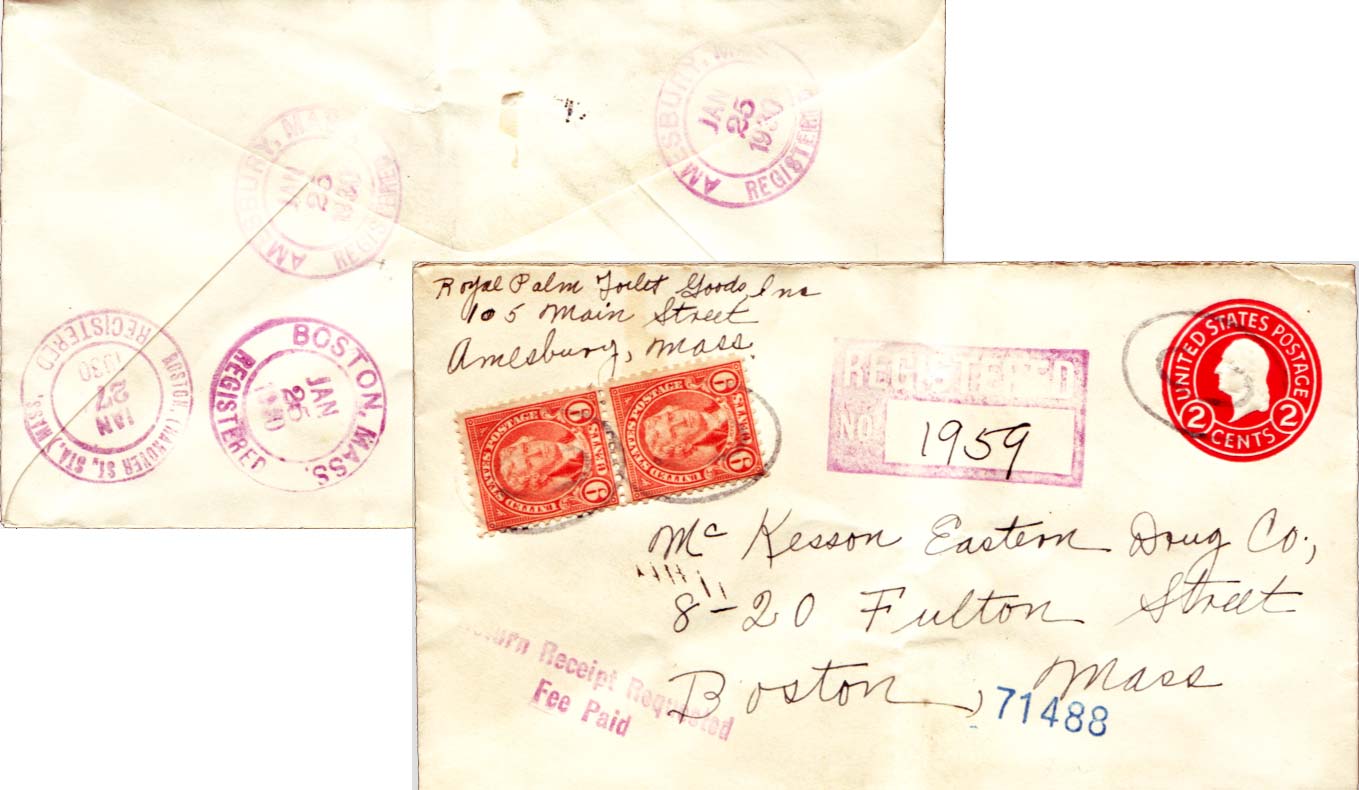 AMESBURY, MASS.
JAN
25
1930
REGISTERED
AMESBURY, MASS.
JAN
25
1930
REGISTERED
BOSTON, (HANOVER ST. STA.) MASS.
JAN
27
1930
REGISTERED
BOSTON, MASS.
JAN
26
1930
REGISTERED
Royal Palm Toilet Goods, Inc
105 Main Street
Amesbury, Mass.
UNITED STATES POSTAGE
6 CENTS 6
UNITED STATES POSTAGE
6 CENTS 6
REGISTERED
NO. 1959
UNITED STATES POSTAGE
2 CENTS 2
Mc Kesson Eastern Drug Co.,
8-20 Fulton Street
Boston, Mass
Return Receipt Requested
Fee Paid
71488